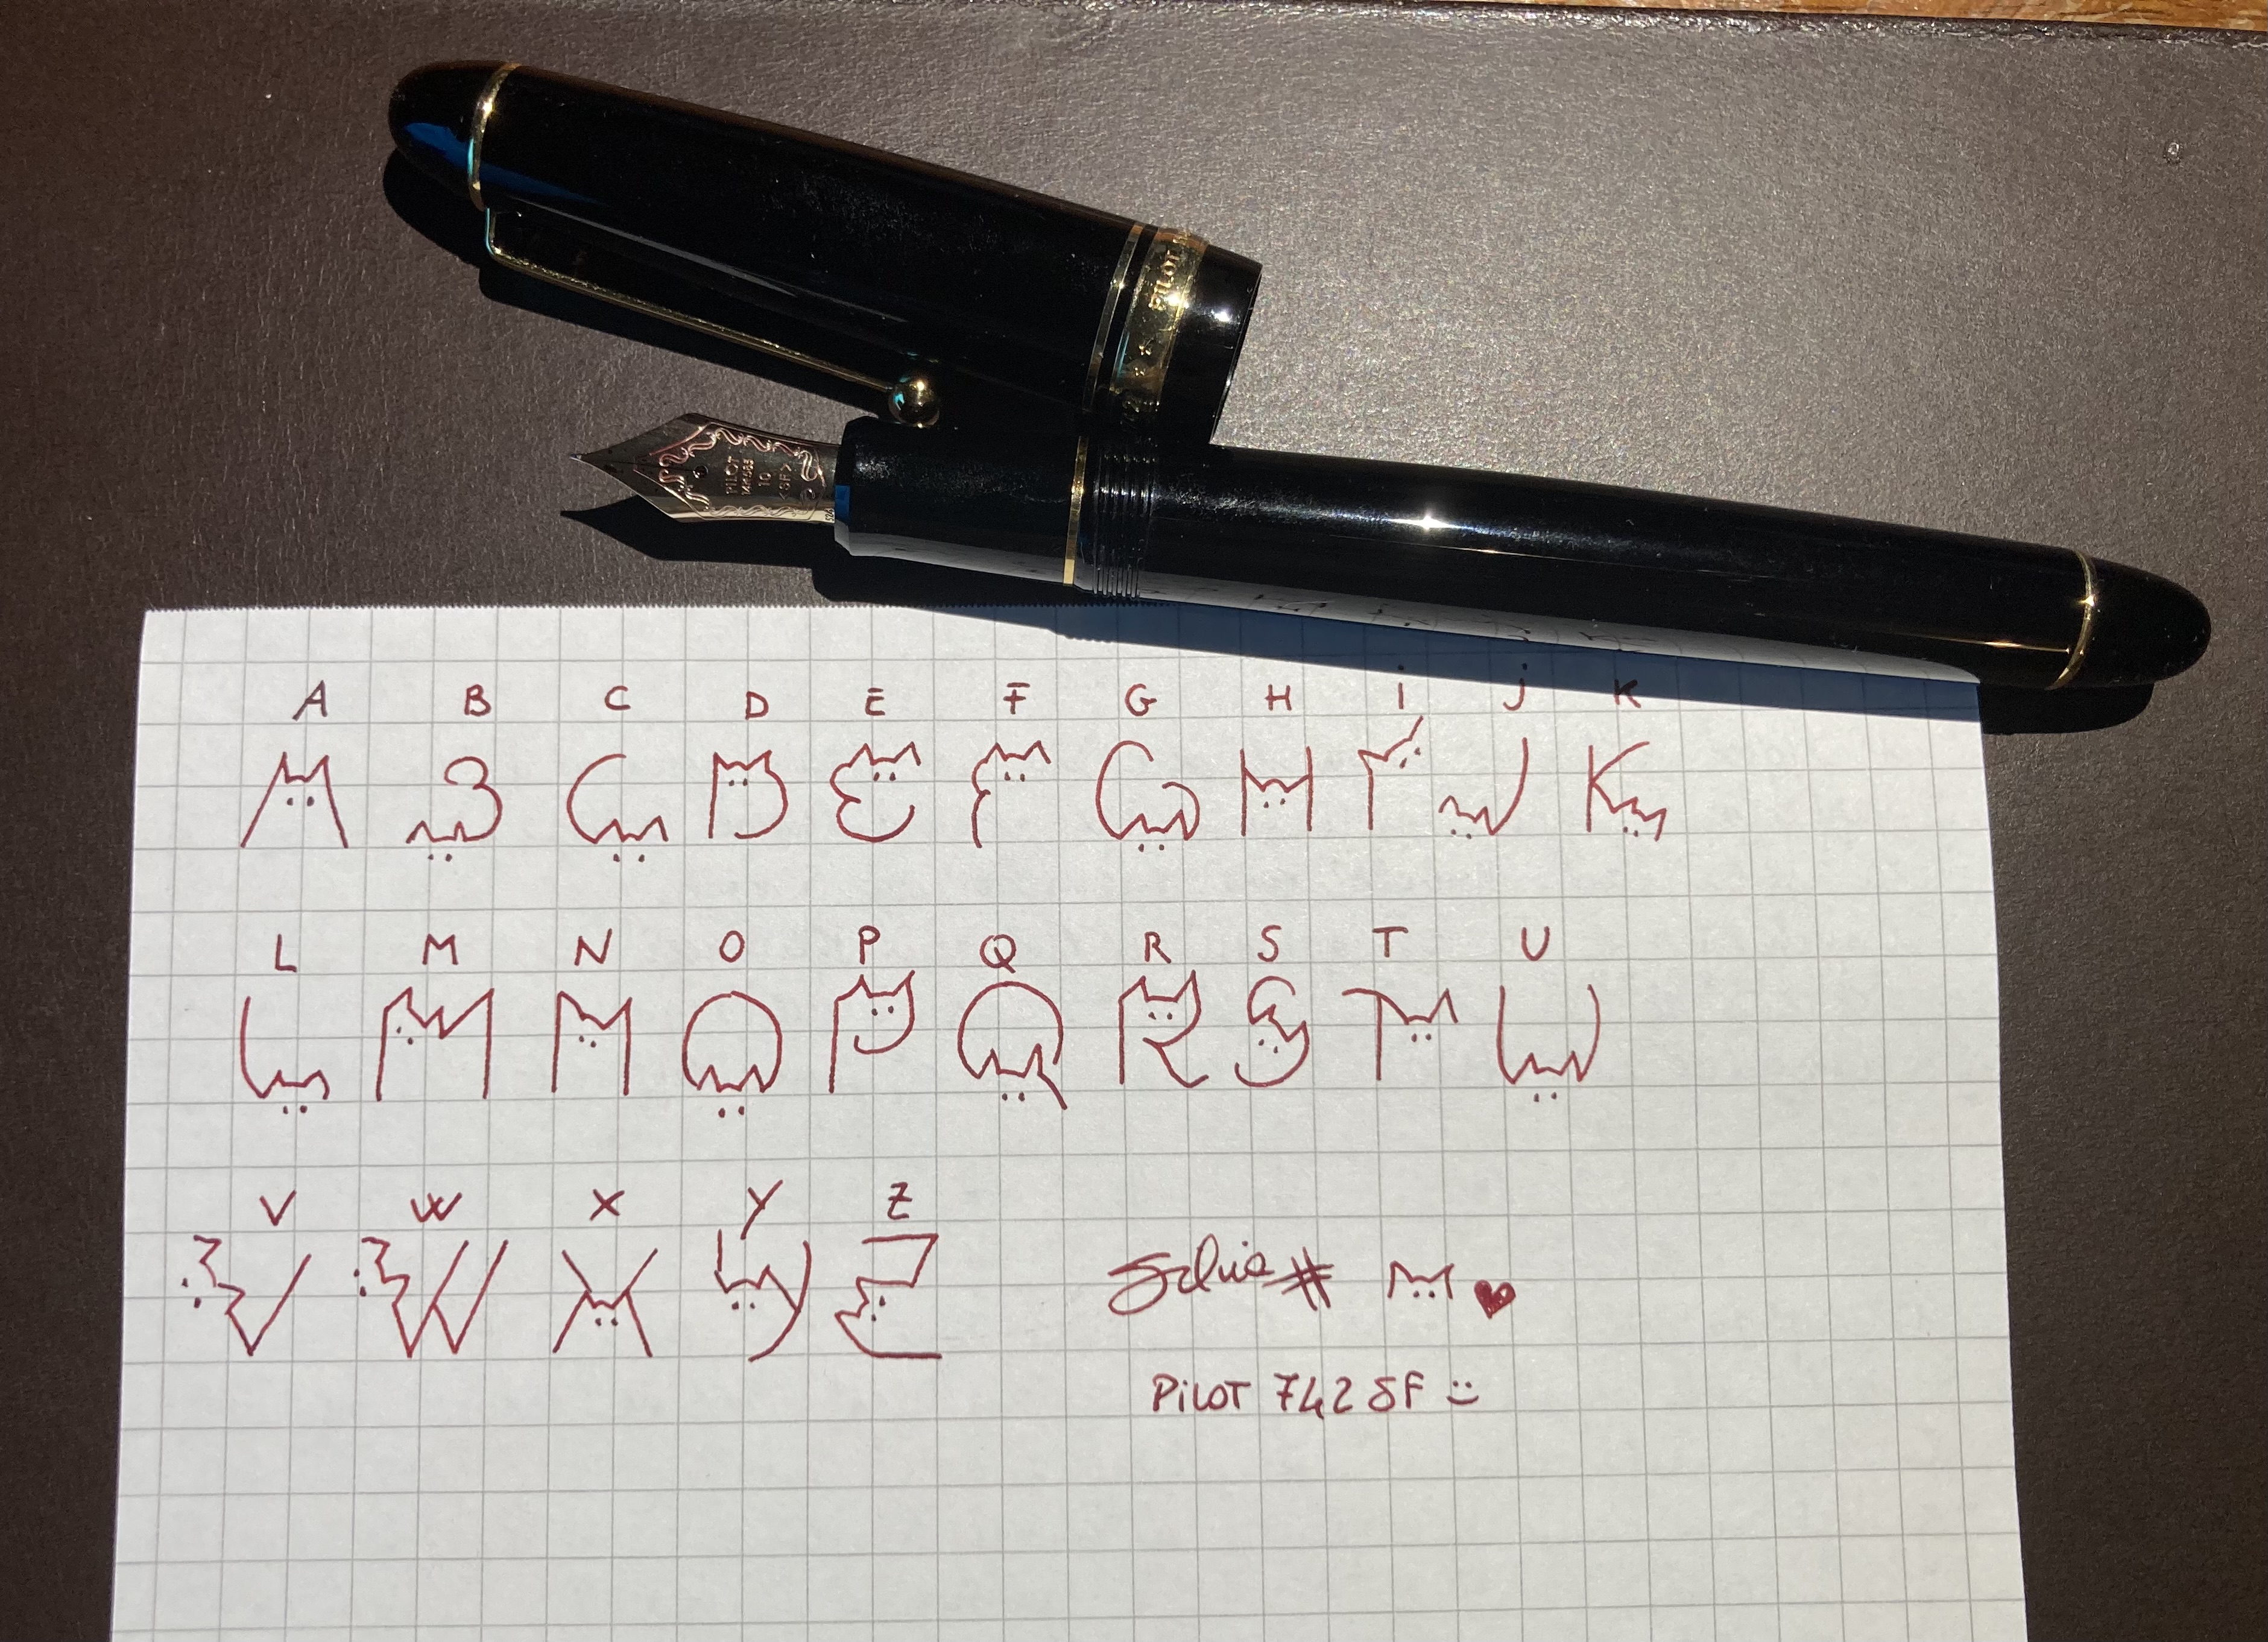 PILOT
PILOT
14K585
10
<SF>
A B C D E F G H i j K
A B C D E F G H I J K
L M N O P Q R S T U
L M N O P Q R S T U
V W X Y Z
V W X Y Z
Silvia #
PiLOT 742 SF